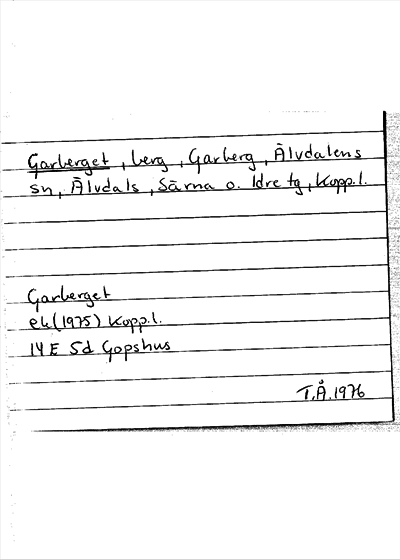 Garberget, berg, Garberg, Älvdalens
sn, Älvdals, Särna o. Idre tg, Kopp.l.
Garberget
ek (1975) Kopp.l.
14 E 5d Gopshus
T.Å. 1976